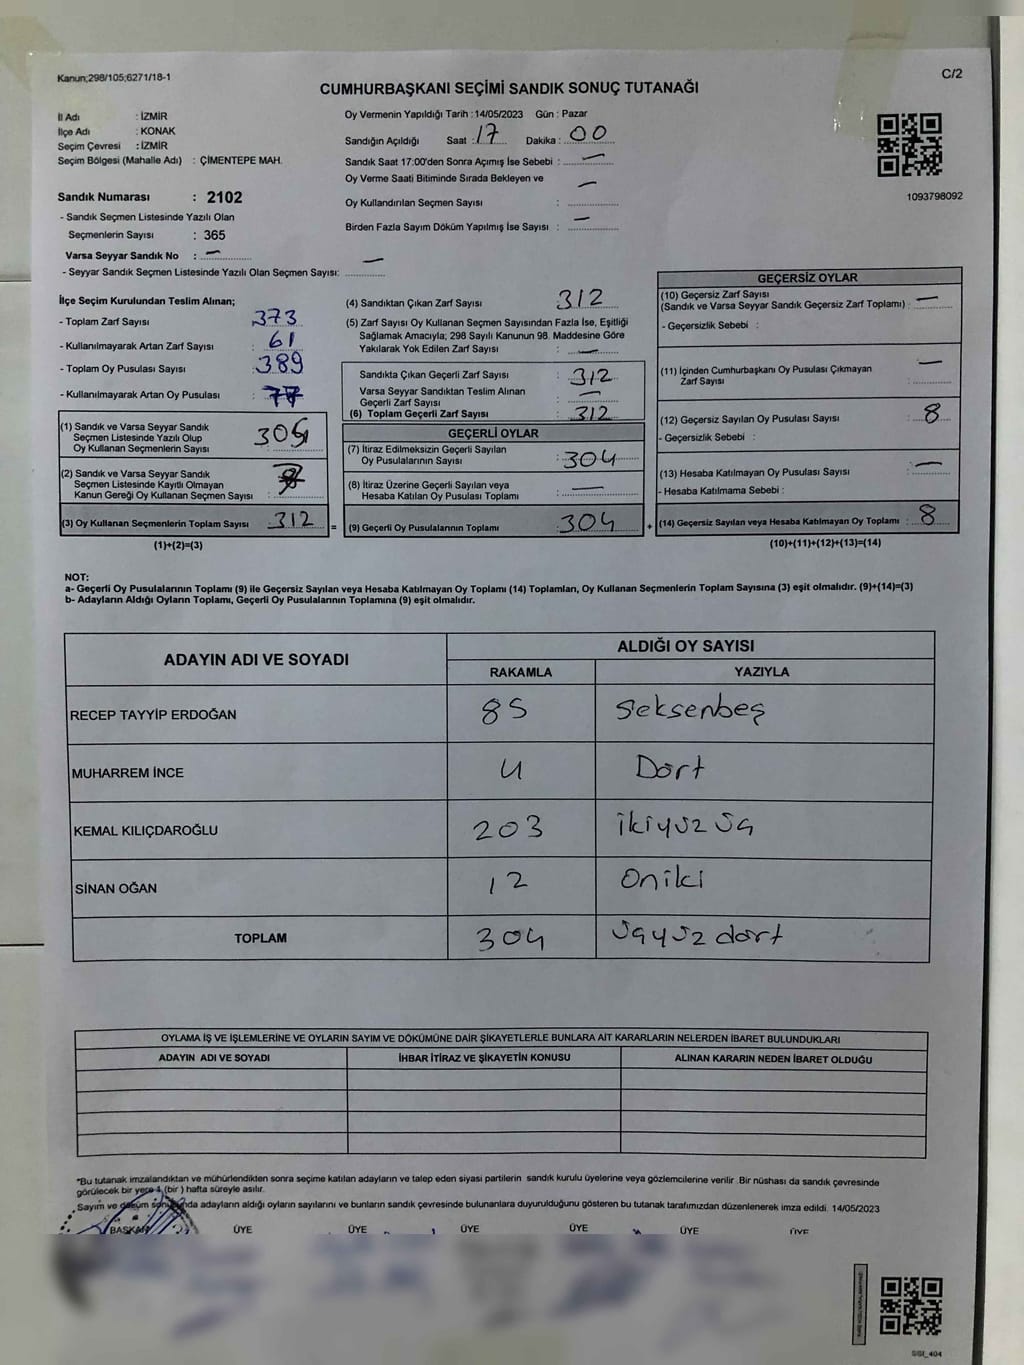 Kanun;298/105;6271/18-1
C/2
CUMHURBAŞKANI SEÇİMİ SANDIK SONUÇ TUTANAĞI
İl Adı : İZMİR
İlçe Adı : KONAK
Seçim Çevresi : İZMİR
Seçim Bölgesi (Mahalle Adı) : ÇİMENTEPE MAH.
Oy Vermenin Yapıldığı Tarih : 14/05/2023 Gün : Pazar
Sandığın Açıldığı Saat : 17 Dakika : 00
Sandık Saat 17:00'den Sonra Açımış İse Sebebi : —
Oy Verme Saati Bitiminde Sırada Bekleyen ve —
Oy Kullandırılan Seçmen Sayısı :
Birden Fazla Sayım Döküm Yapılmış İse Sayısı : —
1093798092
Sandık Numarası : 2102
- Sandık Seçmen Listesinde Yazılı Olan
Seçmenlerin Sayısı : 365
Varsa Seyyar Sandık No : —
- Seyyar Sandık Seçmen Listesinde Yazılı Olan Seçmen Sayısı: —
İlçe Seçim Kurulundan Teslim Alınan;
- Toplam Zarf Sayısı : 373
- Kullanılmayarak Artan Zarf Sayısı : 61
- Toplam Oy Pusulası Sayısı : 389
- Kullanılmayarak Artan Oy Pusulası : 77
(1) Sandık ve Varsa Seyyar Sandık
Seçmen Listesinde Yazılı Olup
Oy Kullanan Seçmenlerin Sayısı
(2) Sandık ve Varsa Seyyar Sandık
Seçmen Listesinde Kayıtlı Olmayan
Kanun Gereği Oy Kullanan Seçmen Sayısı :
(3) Oy Kullanan Seçmenlerin Toplam Sayısı : 312
(1)+(2)=(3)
(4) Sandıktan Çıkan Zarf Sayısı : 312
(5) Zarf Sayısı Oy Kullanan Seçmen Sayısından Fazla İse, Eşitliği
Sağlamak Amacıyla; 298 Sayılı Kanunun 98. Maddesine Göre
Yakılarak Yok Edilen Zarf Sayısı : —
Sandıkta Çıkan Geçerli Zarf Sayısı : 312
Varsa Seyyar Sandıktan Teslim Alınan
Geçerli Zarf Sayısı : —
(6) Toplam Geçerli Zarf Sayısı : 312
GEÇERLİ OYLAR
(7) İtiraz Edilmeksizin Geçerli Sayılan
Oy Pusulalarının Sayısı : 304
(8) İtiraz Üzerine Geçerli Sayılan veya
Hesaba Katılan Oy Pusulası Toplamı : —
= (9) Geçerli Oy Pusulalarının Toplamı : 304
GEÇERSİZ OYLAR
(10) Geçersiz Zarf Sayısı
(Sandık ve Varsa Seyyar Sandık Geçersiz Zarf Toplamı) : —
- Geçersizlik Sebebi :
(11) İçinden Cumhurbaşkanı Oy Pusulası Çıkmayan
Zarf Sayısı : —
(12) Geçersiz Sayılan Oy Pusulası Sayısı : 8
- Geçersizlik Sebebi :
(13) Hesaba Katılmayan Oy Pusulası Sayısı : —
- Hesaba Katılmama Sebebi :
+ (14) Geçersiz Sayılan veya Hesaba Katılmayan Oy Toplamı : 8
(10)+(11)+(12)+(13)=(14)
NOT:
a- Geçerli Oy Pusulalarının Toplamı (9) ile Geçersiz Sayılan veya Hesaba Katılmayan Oy Toplamı (14) Toplamları, Oy Kullanan Seçmenlerin Toplam Sayısına (3) eşit olmalıdır. (9)+(14)=(3)
b- Adayların Aldığı Oyların Toplamı, Geçerli Oy Pusulalarının Toplamına (9) eşit olmalıdır.
ADAYIN ADI VE SOYADI
ALDIĞI OY SAYISI
RAKAMLA YAZIYLA
RECEP TAYYİP ERDOĞAN 85 Seksenbeş
MUHARREM İNCE 4 Dört
KEMAL KILIÇDAROĞLU 203 ikiyüz üç
SİNAN OĞAN 12 Oniki
TOPLAM 304 üçyüz dört
OYLAMA İŞ VE İŞLEMLERİNE VE OYLARIN SAYIM VE DÖKÜMÜNE DAİR ŞİKAYETLERLE BUNLARA AİT KARARLARIN NELERDEN İBARET BULUNDUKLARI
ADAYIN ADI VE SOYADI İHBAR İTİRAZ VE ŞİKAYETİN KONUSU ALINAN KARARIN NEDEN İBARET OLDUĞU
*Bu tutanak imzalandıktan ve mühürlendikten sonra seçime katılan adayların ve talep eden siyasi partilerin sandık kurulu üyelerine veya gözlemcilerine verilir .Bir nüshası da sandık çevresinde
görülecek bir yere 1 (bir ) hafta süreyle asılır.
Sayım ve döküm sonucunda adayların aldığı oyların sayılarını ve bunların sandık çevresinde bulunanlara duyurulduğunu gösteren bu tutanak tarafımızdan düzenlenerek imza edildi. 14/05/2023
BAŞKAN ÜYE ÜYE ÜYE ÜYE ÜYE ÜYE